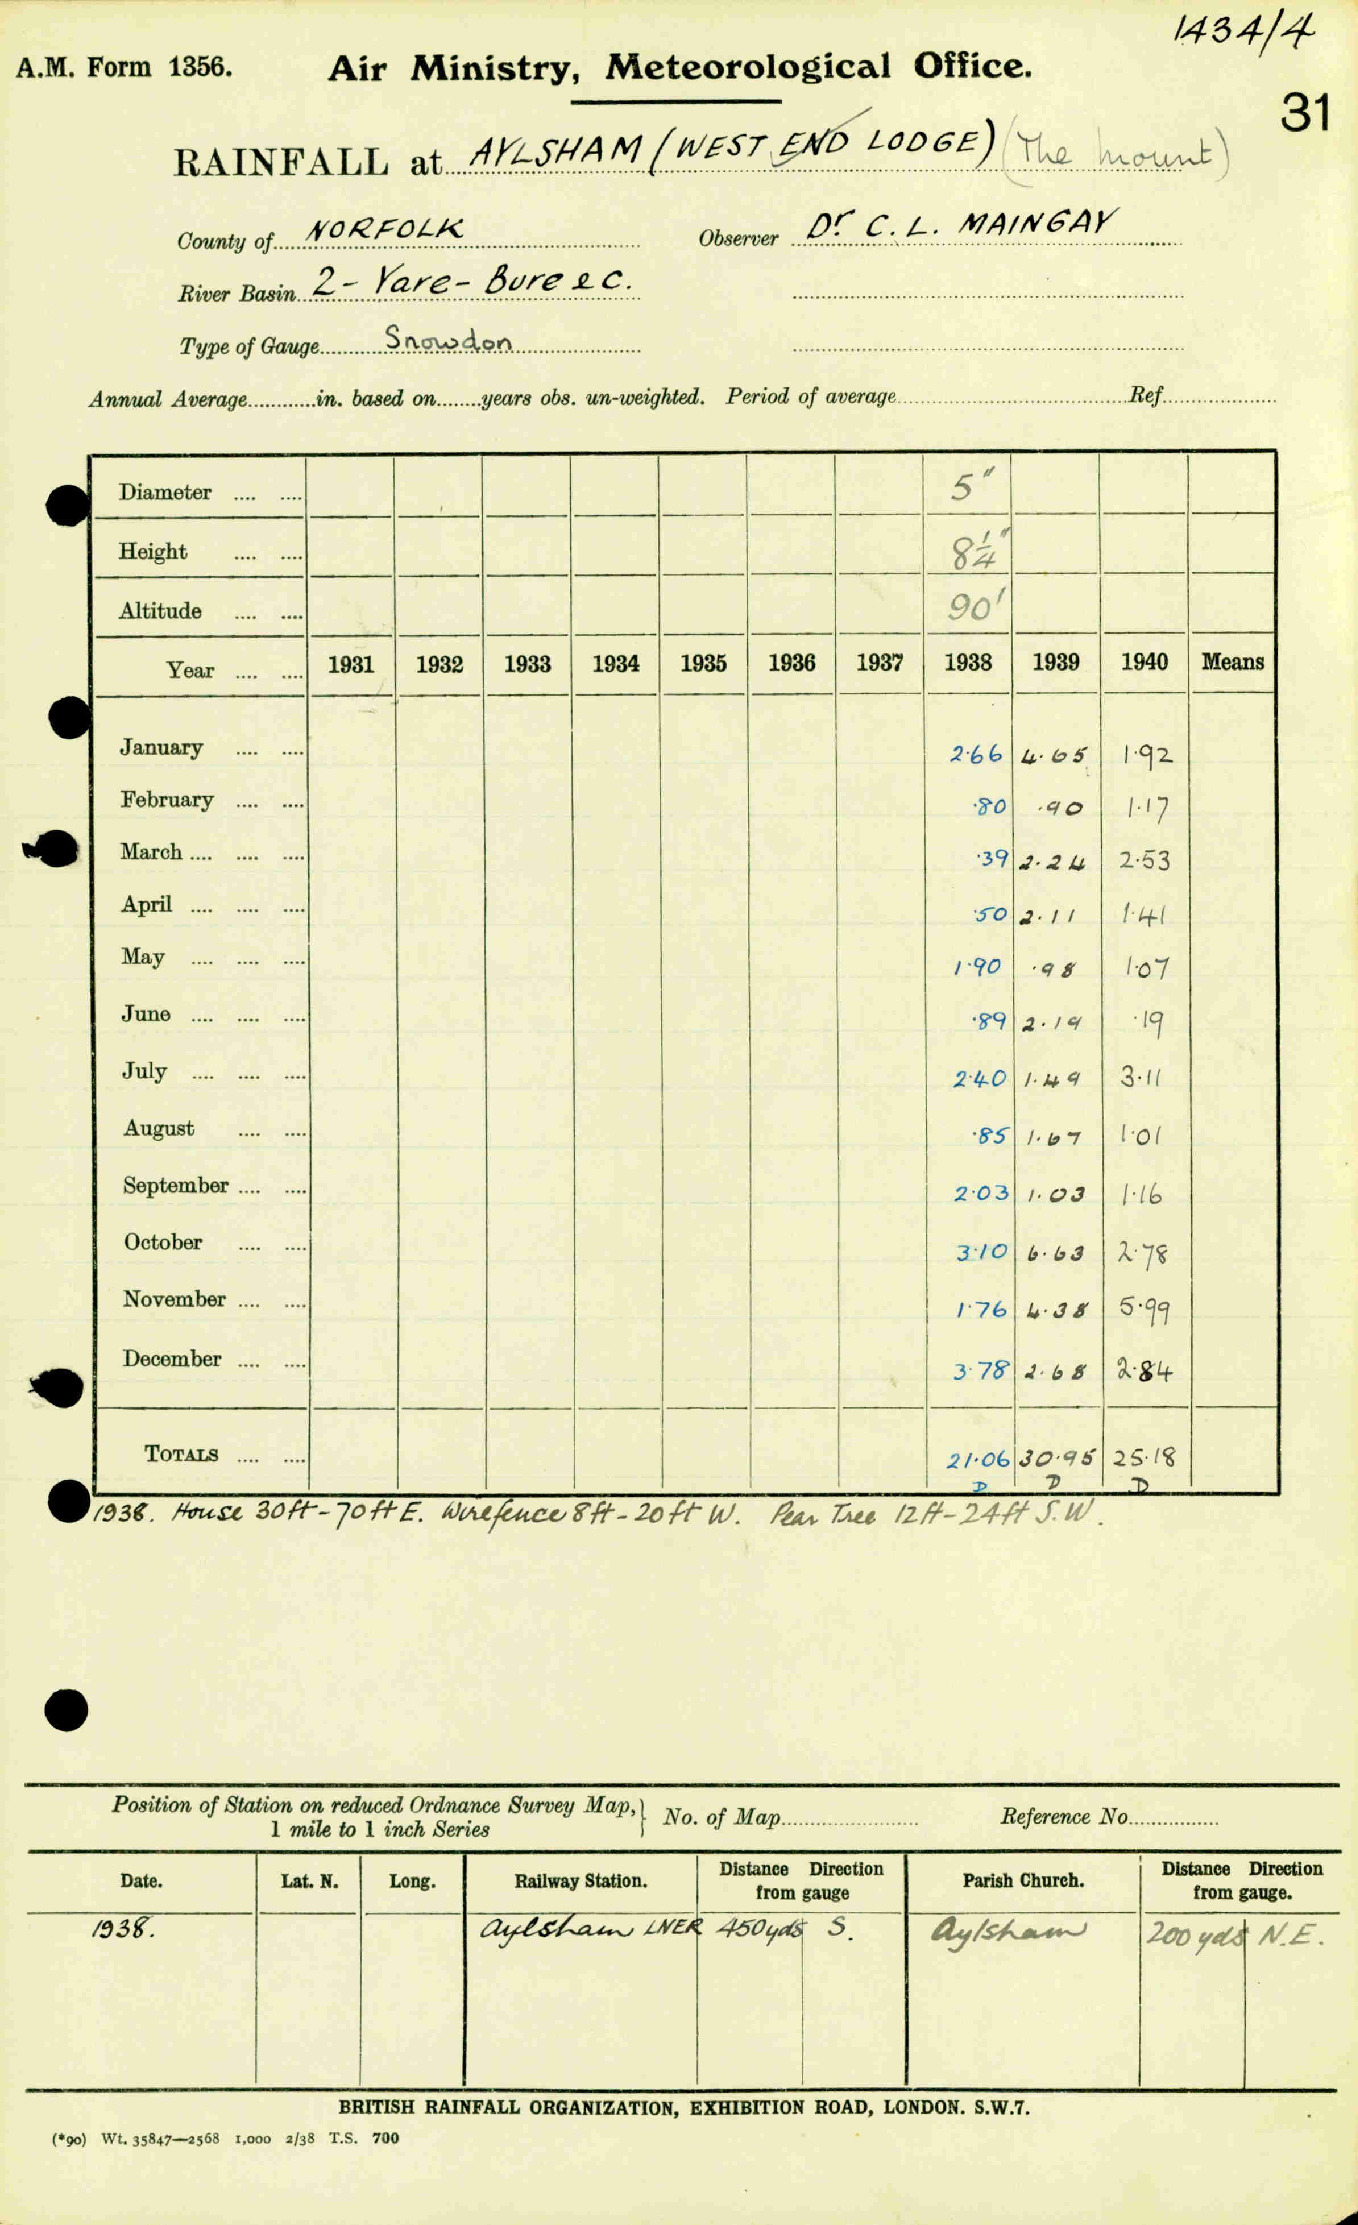 1434/4
A.M. Form 1356. Air Ministry, Meteorological Office.
31
RAINFALL at AYLSHAM (WEST END LODGE) (The Mount)
County of NORFOLK Observer Dr. C. L. MAINGAY
River Basin 2 - Yare - Bure &c.
Type of Gauge Snowdon
Annual Average in. based on years obs. un-weighted. Period of average Ref
Diameter 5"
Height 8¼"
Altitude 90'
Year 1931 1932 1933 1934 1935 1936 1937 1938 1939 1940 Means
January 2.66 4.65 1.92
February .80 .90 1.17
March .39 2.24 2.53
April .50 2.11 1.41
May 1.90 .98 1.07
June .89 2.19 .19
July 2.40 1.49 3.11
August .85 1.67 1.01
September 2.03 1.03 1.16
October 3.10 6.63 2.78
November 1.76 4.38 5.99
December 3.78 2.68 2.84
TOTALS 21.06 30.95 25.18
D D D
1938. House 30ft - 70ft E. Wirefence 8ft - 20ft W. Pear Tree 12ft - 24ft S.W.
Position of Station on reduced Ordnance Survey Map, } No. of Map Reference No.
1 mile to 1 inch Series
Date. Lat. N. Long. Railway Station. Distance Direction from gauge Parish Church. Distance Direction from gauge.
1938. Aylsham LNER 450yds S. Aylsham 200 yds N.E.
BRITISH RAINFALL ORGANIZATION, EXHIBITION ROAD, LONDON. S.W.7.
(*90) Wt. 35847—2568 1,000 2/38 T.S. 700